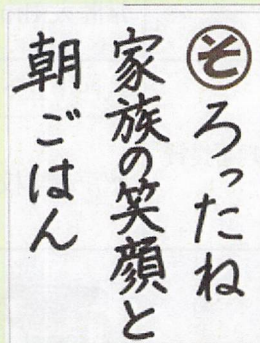 そろったね
家族の笑顔と
朝ごはん